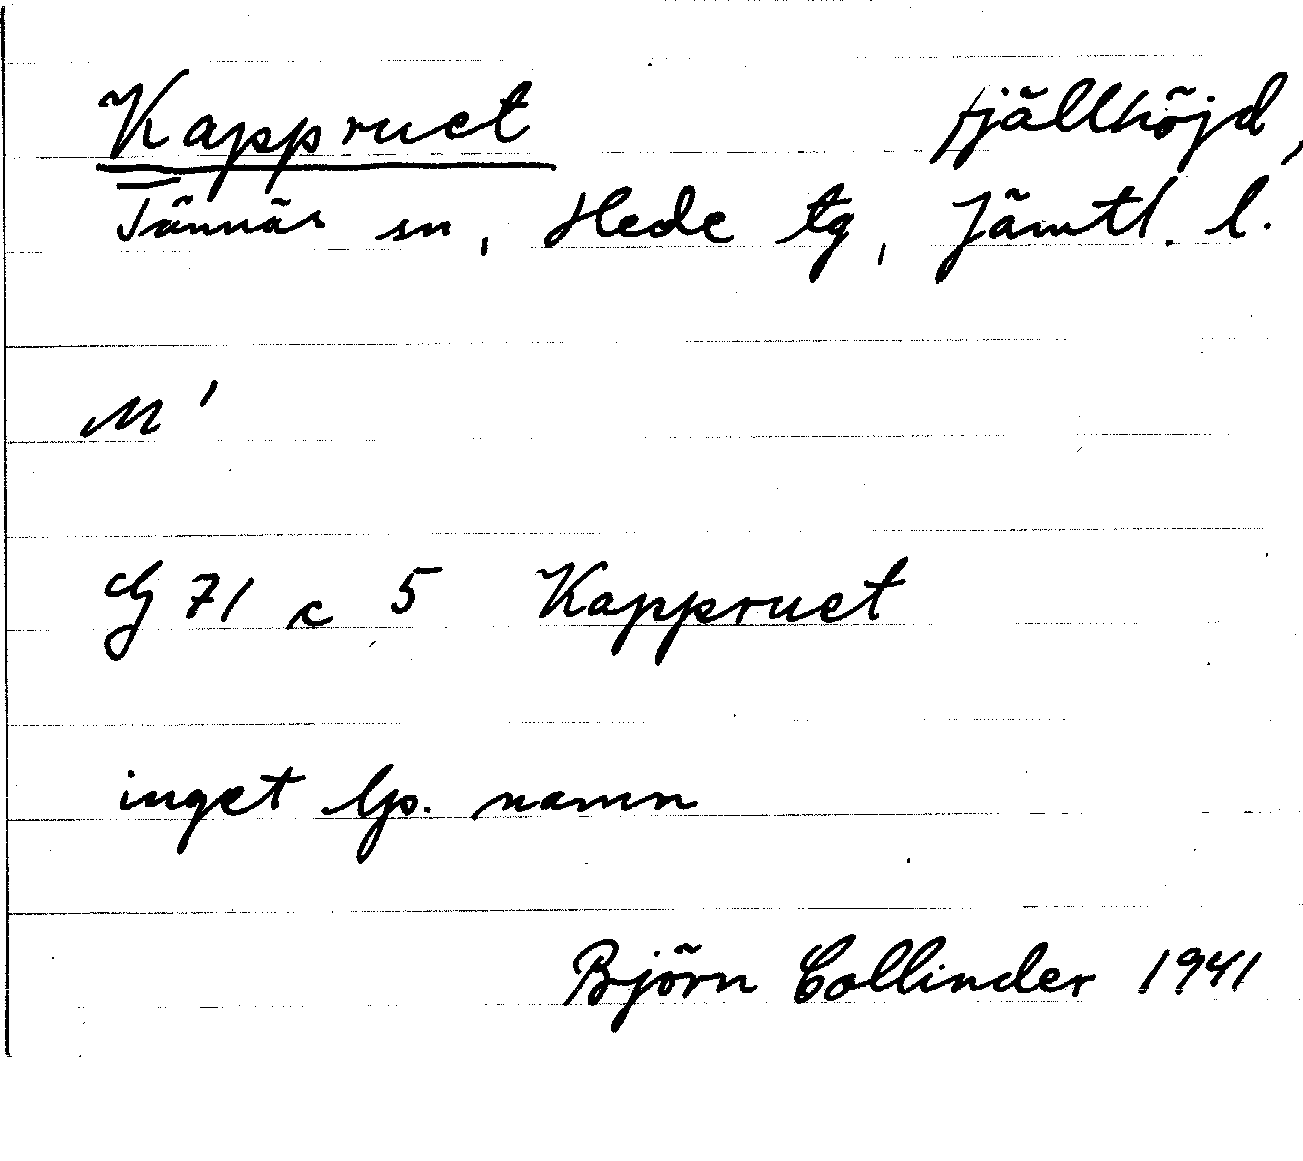 Kappruet fjällhöjd,
Tännäs sn, Hede tg, Jämtl. l.
M'
G 71 c 5 Kappruet
inget lp. namn
Björn Collinder 1941